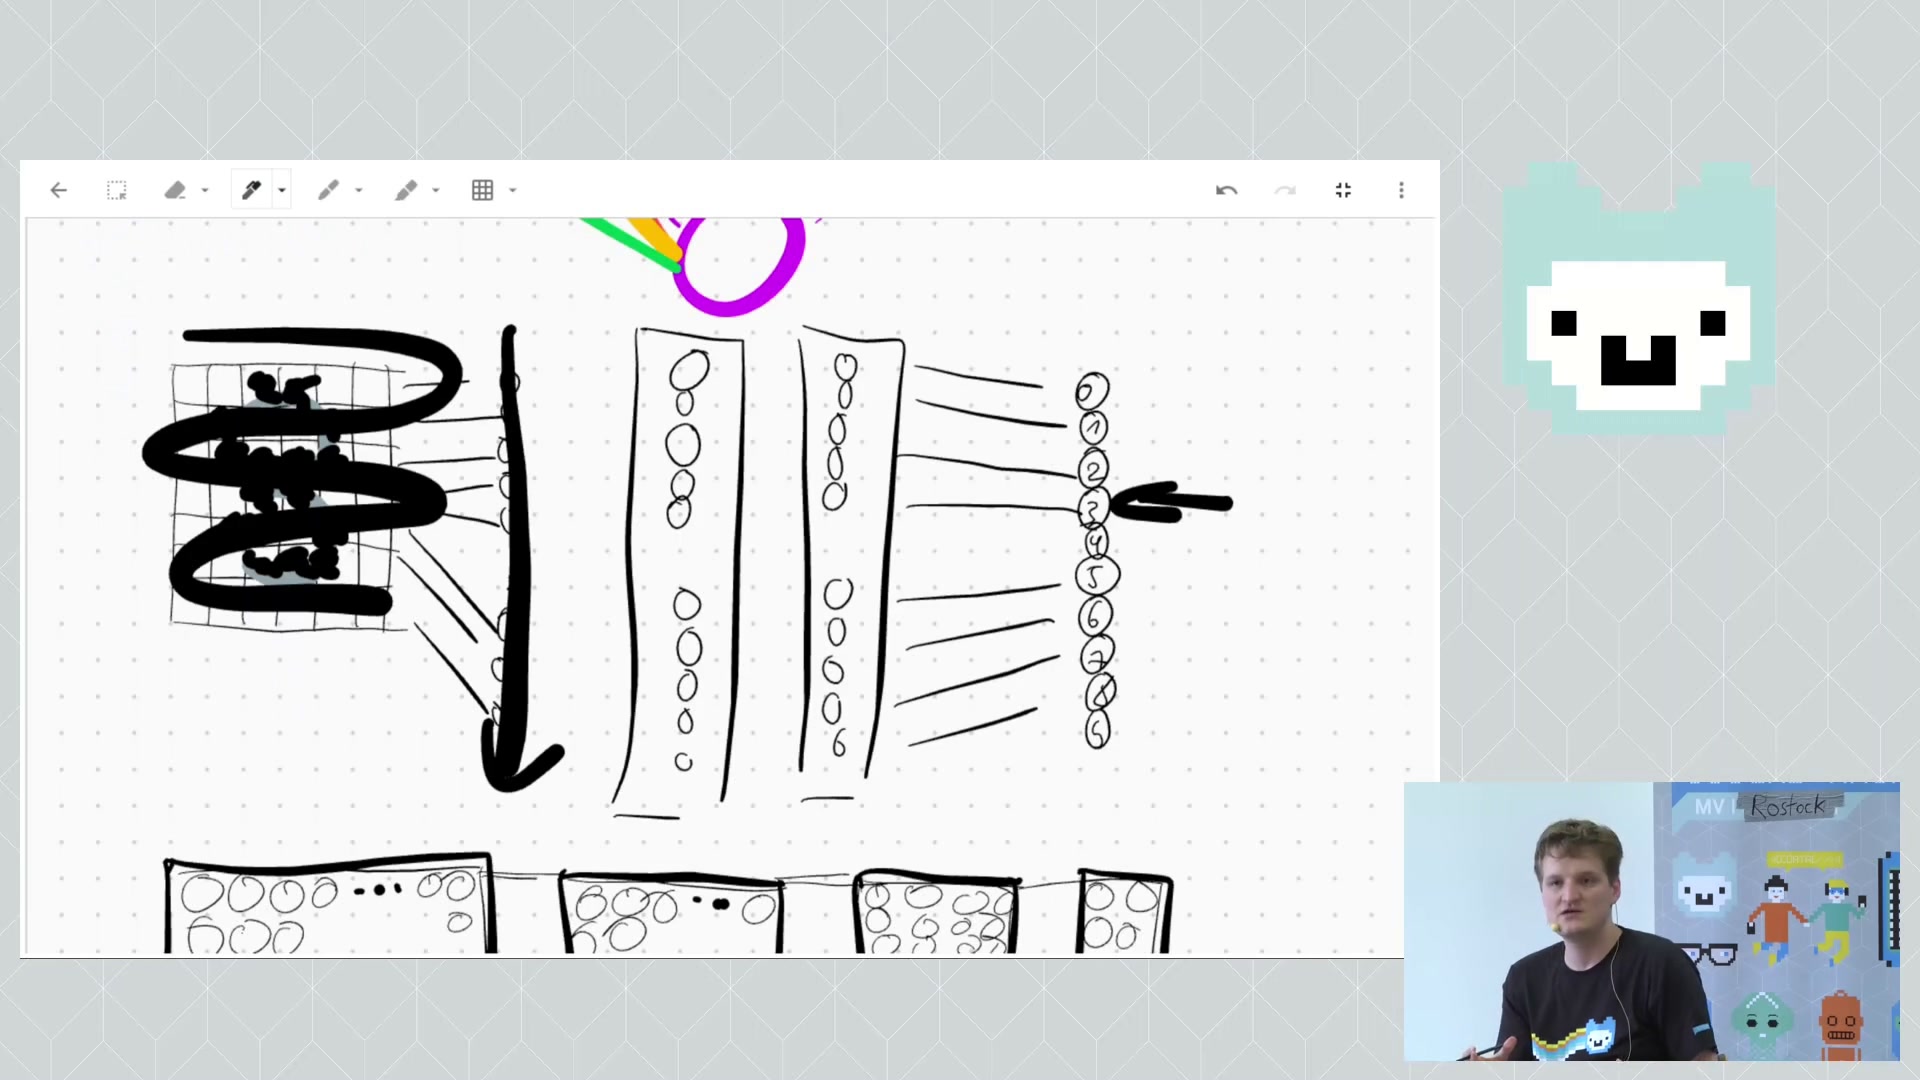 0
1
2
3
4
5
6
7
8
9
MV
Rostock